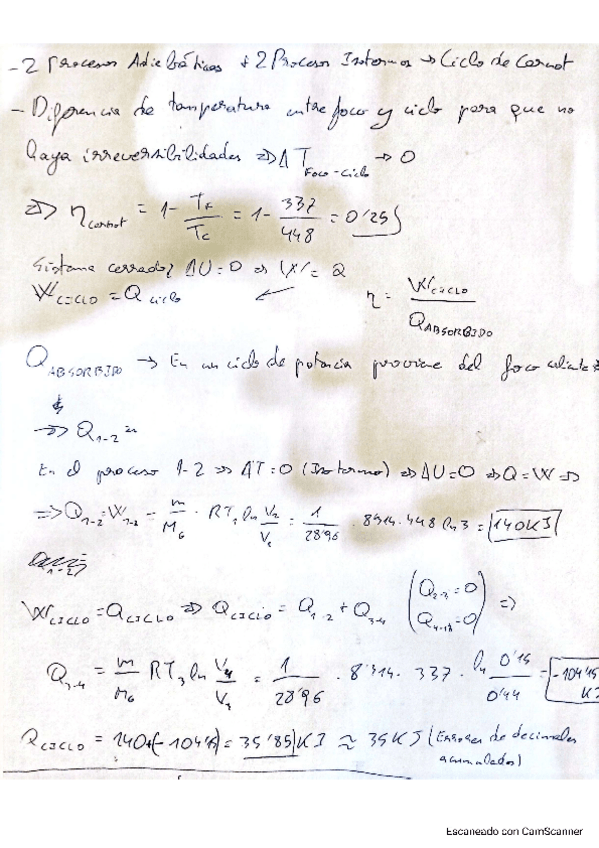 - 2 Procesos Adiabáticos + 2 Procesos Isotermos → Ciclo de Carnot
- Diferencia de temperatura entre foco y ciclo para que no
haya irreversibilidades ⇒ ΔT Foco-Ciclo → 0
⇒ η carnot = 1 - TF/TC = 1 - 337/448 = 0'25
Sistema cerrado, ΔU = 0 ⇒ W = Q
WCICLO = Q ciclo ← η = WCICLO/QABSORBIDO
QABSORBIDO → En un ciclo de potencia proviene del foco caliente
⇒ Q1-2 =
En el proceso 1-2 ⇒ ΔT = 0 (Isotermo) ⇒ ΔU = 0 ⇒ Q = W ⇒
⇒ Q1-2 = W1-2 = m/MG · RT1 ln V2/V1 = 1/28'96 · 8'314 · 448 ln 3 = 140KJ
WCICLO = QCICLO ⇒ QCICLO = Q1-2 + Q3-4 (Q2-3 = 0 Q4-1 = 0) ⇒
Q3-4 = m/MG RT3 ln V4/V3 = 1/28'96 · 8'314 · 337 · ln 0'15/0'44 = -104'15 KJ
QCICLO = 140 + (-104'15) = 35'85 KJ ≈ 35KJ (Errores de decimales
acumulados)
Escaneado con CamScanner